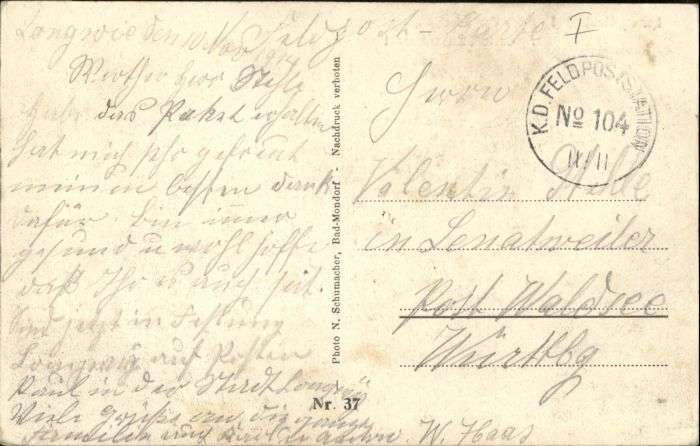 Longwie den 10 Nov 1917
Feldpost-Karte I
Werther Herr Stehe
Habe das Paket erhalten
hat mich sehr gefreut
meinen besten dank
dafür. bin immer
gesund u wohl hoffe
daß Ihr es auch seit.
Sind jetzt in
Longwy auf Posten
in der Stadt
Viele Grüße an die ganze
Familie und
W. Haas
Photo N. Schumacher, Bad-Mondorf - Nachdruck verboten
Nr. 37
K.D. FELDPOSTSTATION
No 104
11/11
Herrn
Valentin
in
Post Waldsee
Württbg